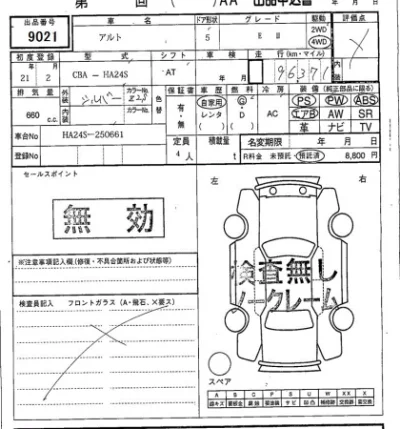 第 回 ( )AA 出品申込書 年 月 日
出品番号 車名 ドア形状 グレード 駆動 評価点
9021 アルト 5 E II 2WD 4WD
初度登録 型式 シフト 車検 走行(km・マイル) 内装
21年 2月 CBA-HA24S AT 年 月
排気量 外装 シルバー カラーNo. 色替 保証書 車歴 燃料 冷房 装備(純正部品に限る)
660 c.c. 内装 カラーNo. 有・無 自家用 レンタ ( ) G・D ( ) AC PS PW ABS
エアB AW SR
革 ナビ TV
車台No HA24S-250661 定員 積載量 名変期限 年 月 日
登録No 4人 t R料金 未預託 預託済 8,600 円
セールスポイント 左 右
無効
検査無し
ノークレーム
※注意事項記入欄(修復・不具合箇所および状態等)
検査員記入 フロントガラス(A・飛石、X要ス)
スペア
A B C P S U W XX X